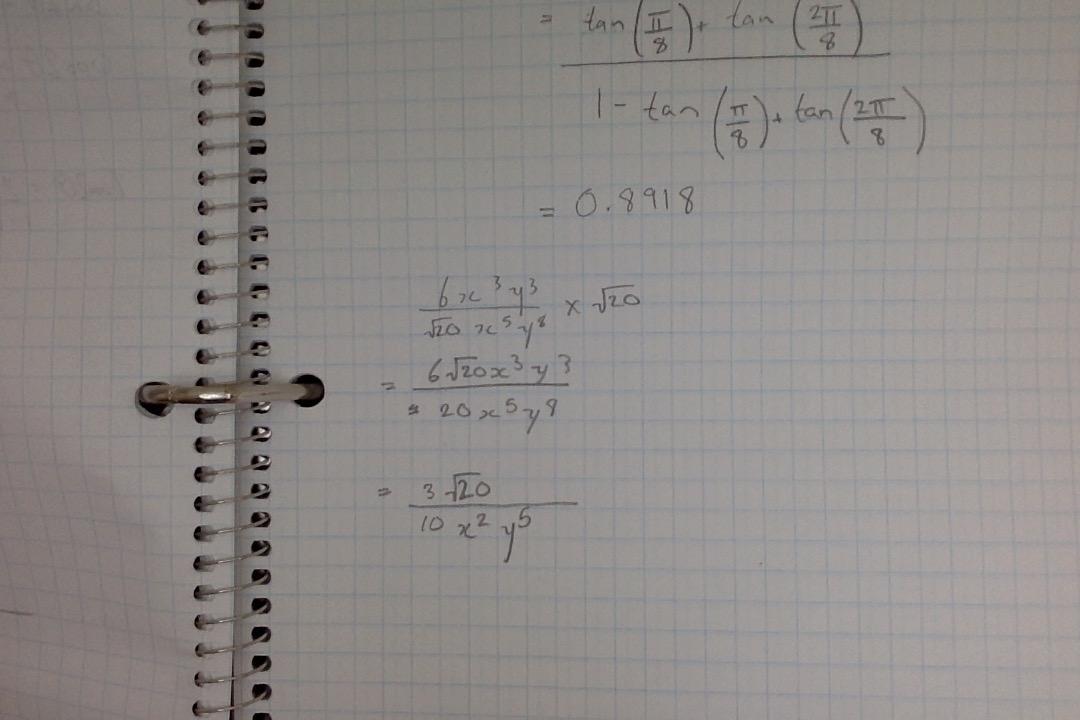 = tan(π/8) + tan(2π/8)
1 - tan(π/8) + tan(2π/8)
= 0.8918
6x³y³ × √20
√20 x⁵y⁸
= 6√20x³y³
20x⁵y⁸
= 3√20
10x²y⁵